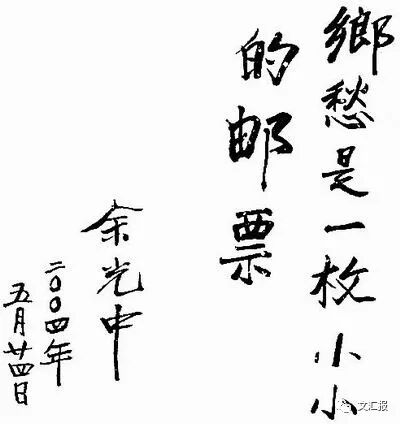 鄉愁是一枚小小
的邮票
余光中
二〇〇四年
五月廿四日
文汇报